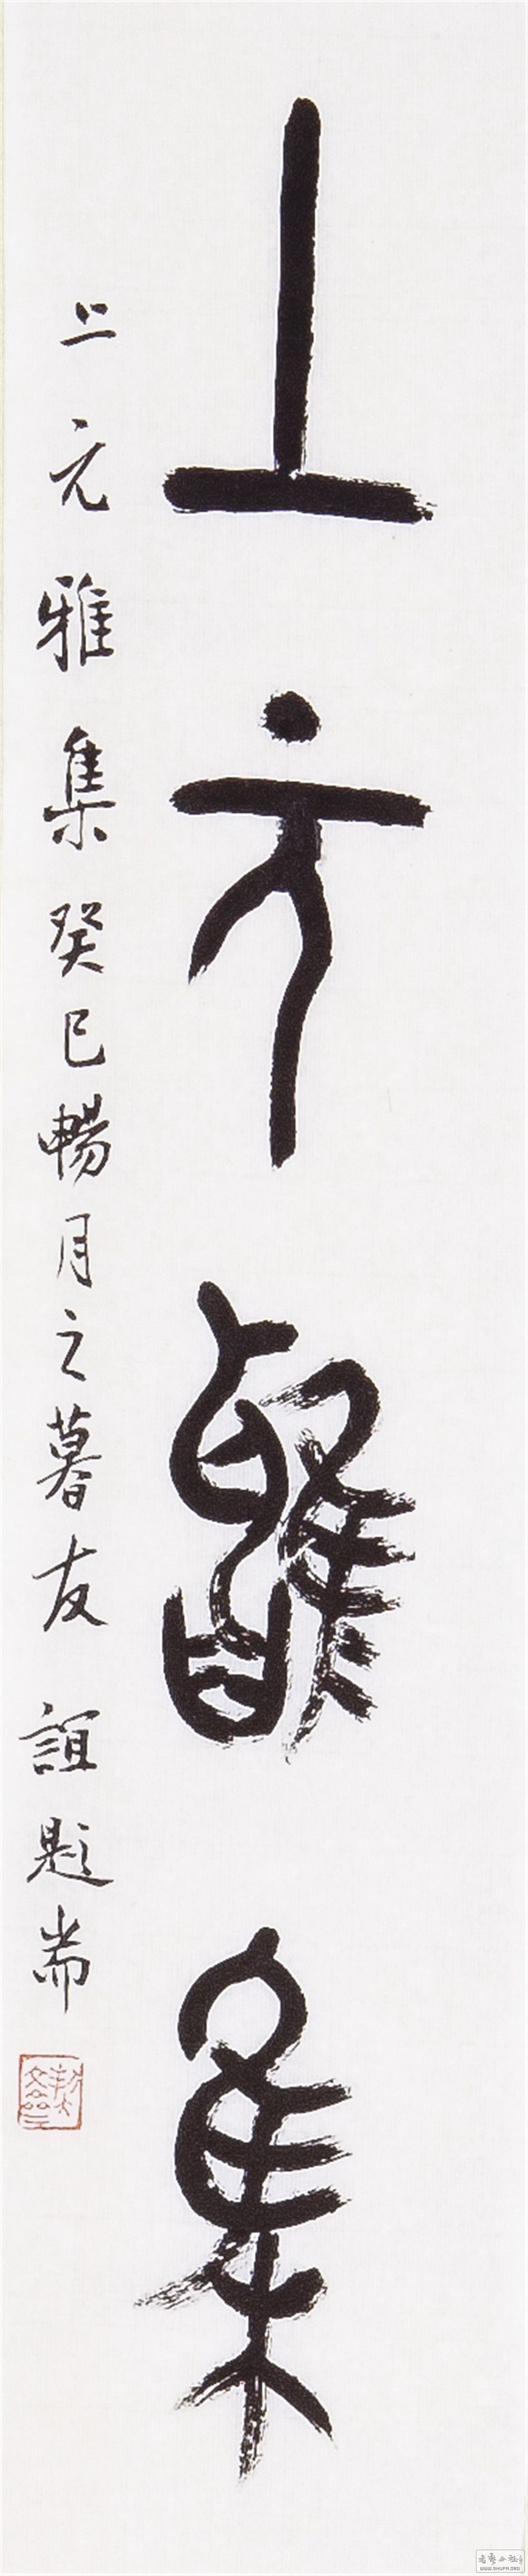 上元雅集
上元雅集癸巳暢月之暮友誼題耑
WWW.SHUFA.ORG